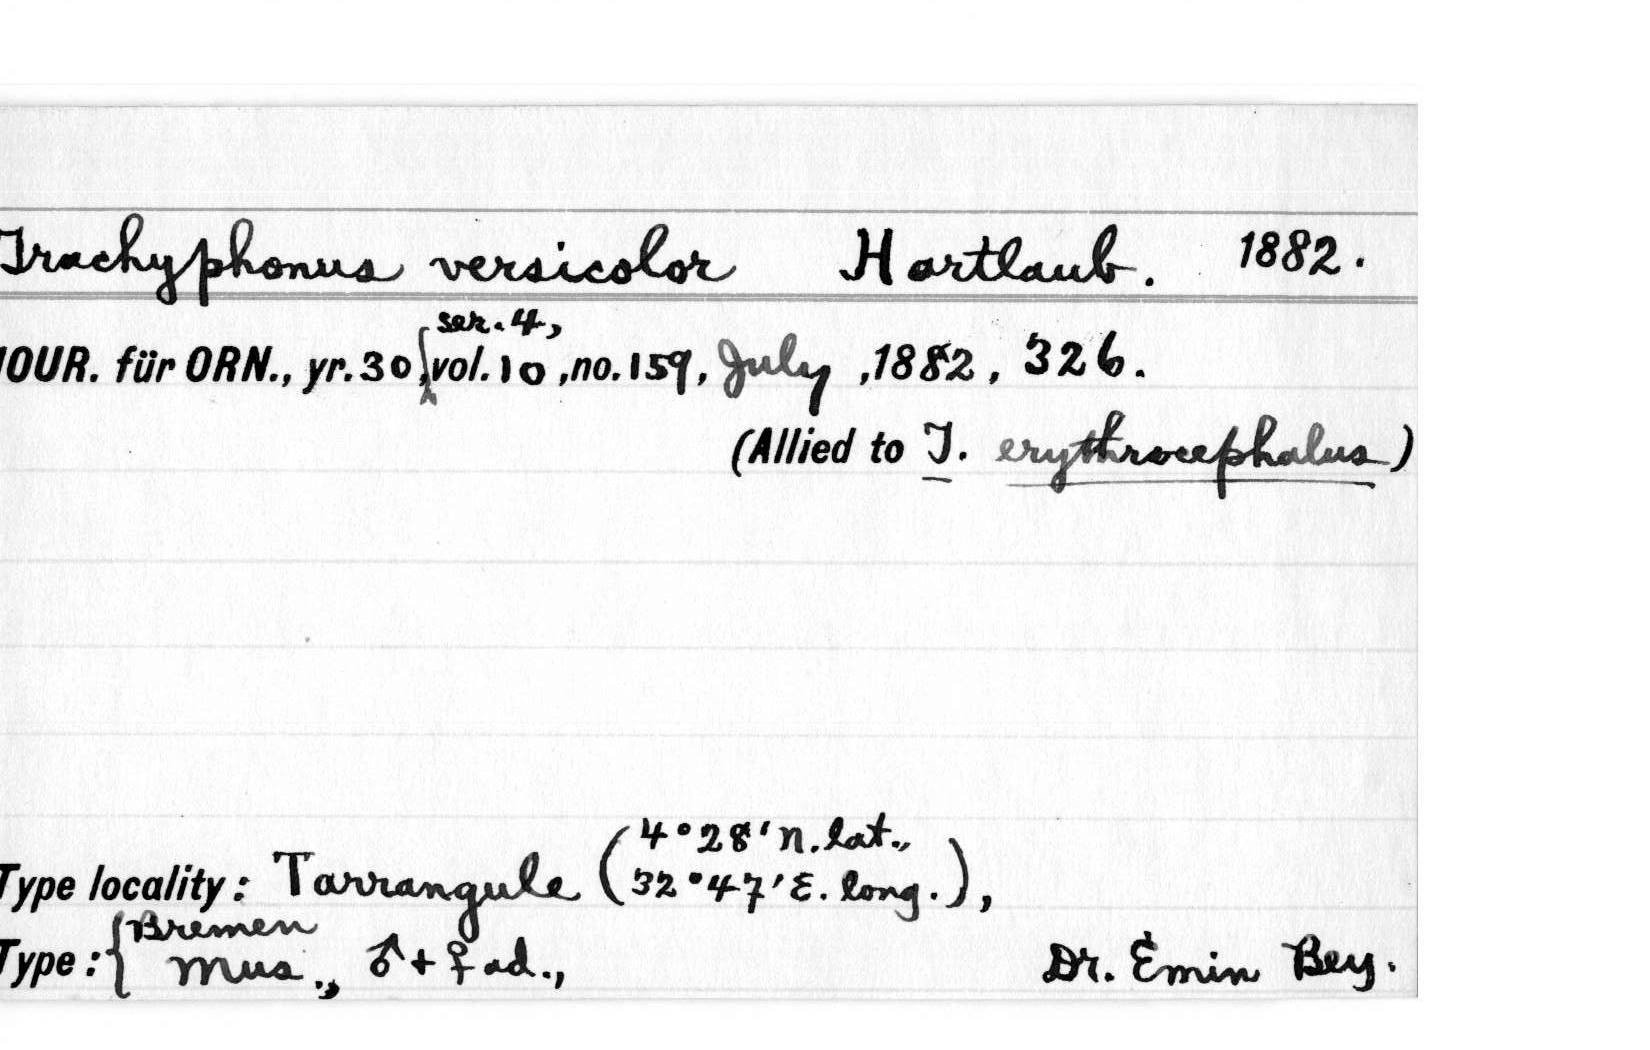 Trachyphonus versicolor Hartlaub. 1882.
ser. 4,
JOUR. für ORN., yr. 30, vol. 10, no. 159, July, 1882, 326.
(Allied to T. erythrocephalus)
4°28' n. lat.,
Type locality: Tarrangule (32°47' E. long.),
Bremen
Type: { Mus., ♂ + ♀ ad., Dr. Emin Bey.